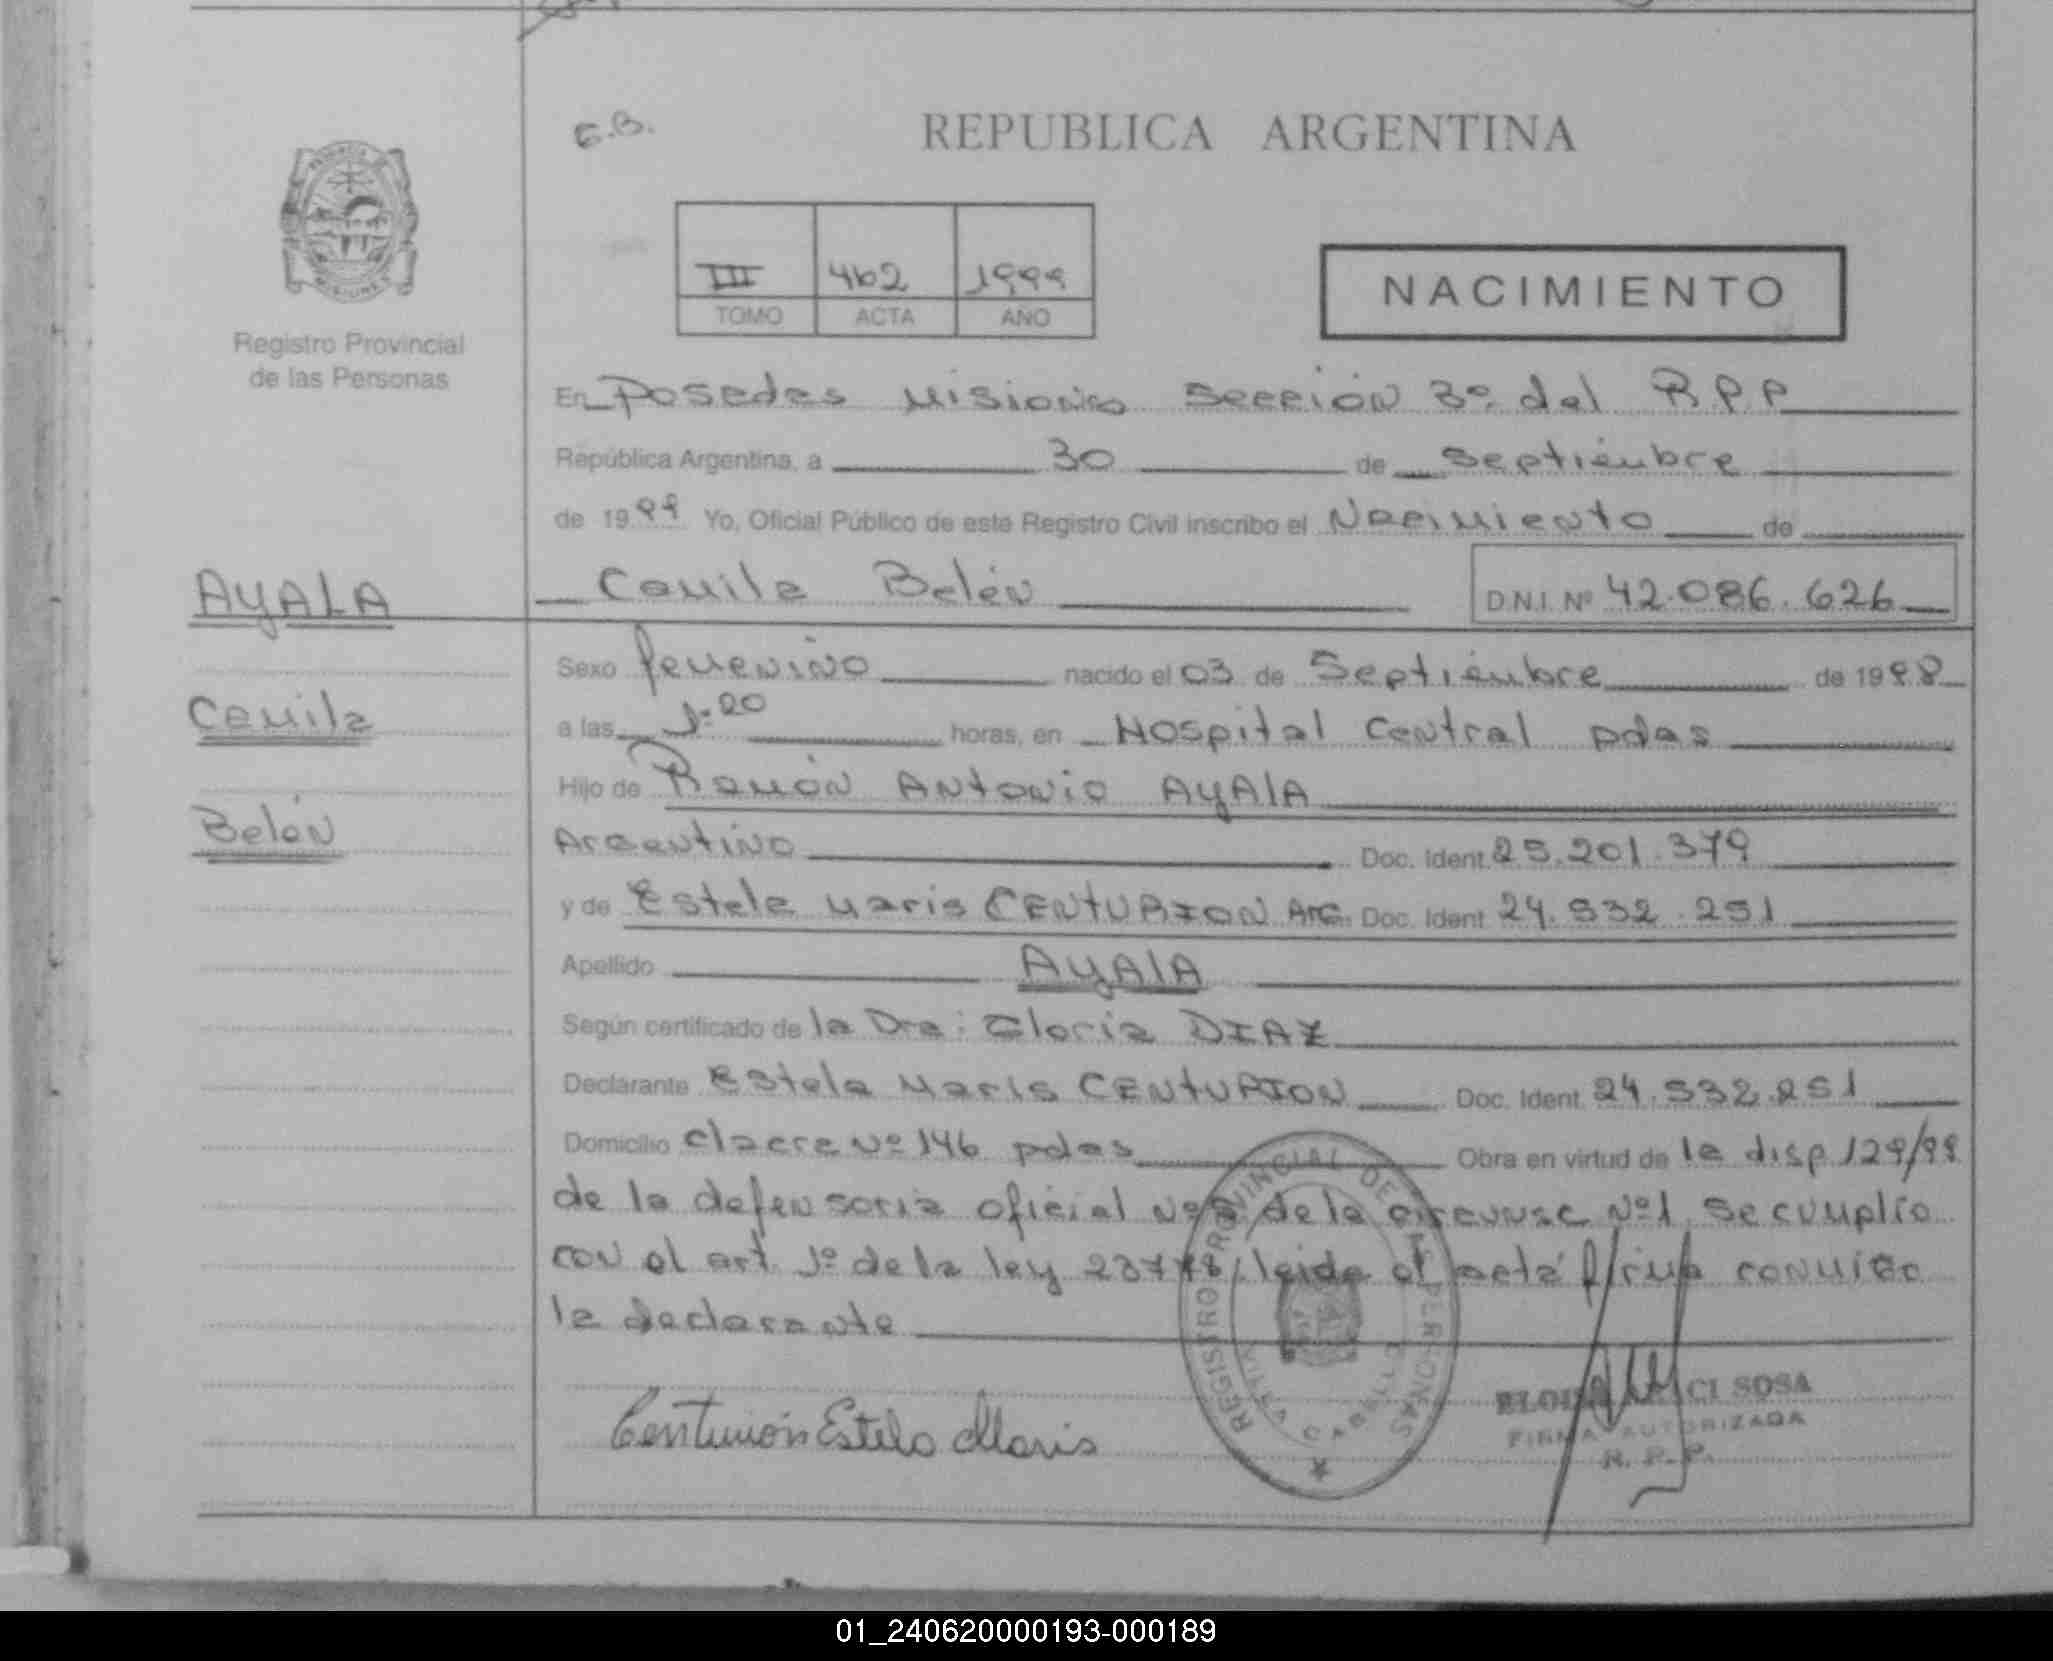 E.B.
REPUBLICA ARGENTINA
III 462 1999
TOMO ACTA AÑO
NACIMIENTO
Registro Provincial
de las Personas
En Posadas Misiones Sección 3º del R.P.P
República Argentina, a 30 de Septiembre
de 1999 Yo, Oficial Público de este Registro Civil inscribo el Nacimiento de
AYALA
Camila Belén D.N.I. Nº 42.086.626
Sexo femenino nacido el 03 de Septiembre de 1998
Camila
a las 1:20 horas, en Hospital Central pdas
Hijo de Ramón Antonio AYALA
Belén
Argentino Doc. Ident. 25.201.379
y de Estela Maris CENTURION Arg. Doc. Ident. 24.532.251
Apellido AYALA
Según certificado de la Dra: Gloria DIAZ
Declarante Estela Maris CENTURION Doc. Ident. 24.532.251
Domicilio chacra Nº 146 pdas Obra en virtud de la disp 129/99
de la defensoria oficial Nº 2 de la circunsc Nº1 se cumplio
con el art. 1º de la ley 23776 leida el acta firma conmigo
la declarante
REGISTRO PROVINCIAL DE LAS PERSONAS
Centurión Estela Maris
SOSA
FIRMA AUTORIZADA
R. P. P.
01_240620000193-000189